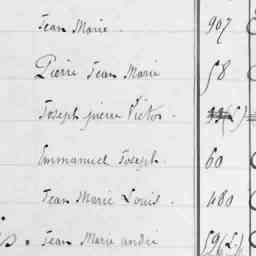 Jean Marie . 907
Pierre Jean Marie 58
Joseph pierre Victor .
Emmanuel Joseph . 60
Jean Marie Louis . 480
Jean Marie andré 59(L)